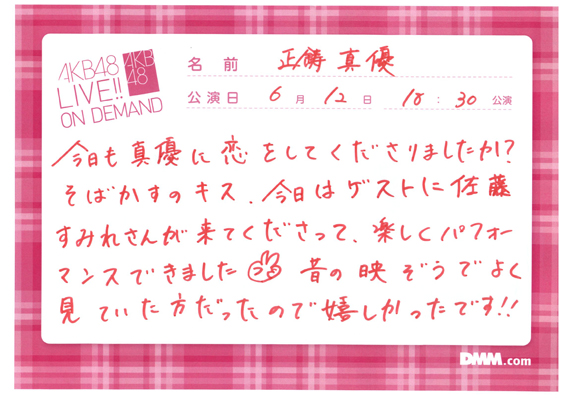 AKB48
LIVE!!
ON DEMAND
AKB
48
名前 正鋳 真優
公演日 6月 12日 18:30 公演
今日も真優に恋をしてくださりましたか?
そばかすのキス、今日はゲストに佐藤
すみれさんが来てくださって、楽しくパフォー
マンスできました 昔の映ぞうでよく
見ていた方だったので嬉しかったです!!
DMM.com